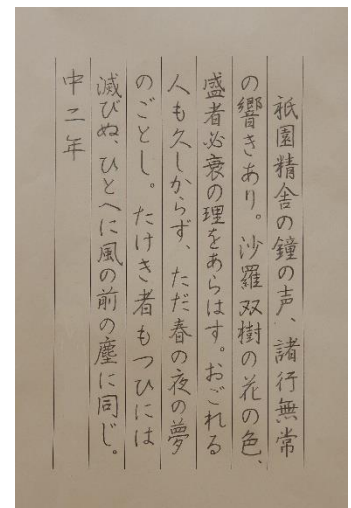 祇園精舎の鐘の声、諸行無常
の響きあり。沙羅双樹の花の色、
盛者必衰の理をあらはす。おごれる
人も久しからず、ただ春の夜の夢
のごとし。たけき者もつひには
滅びぬ、ひとへに風の前の塵に同じ。
中二年